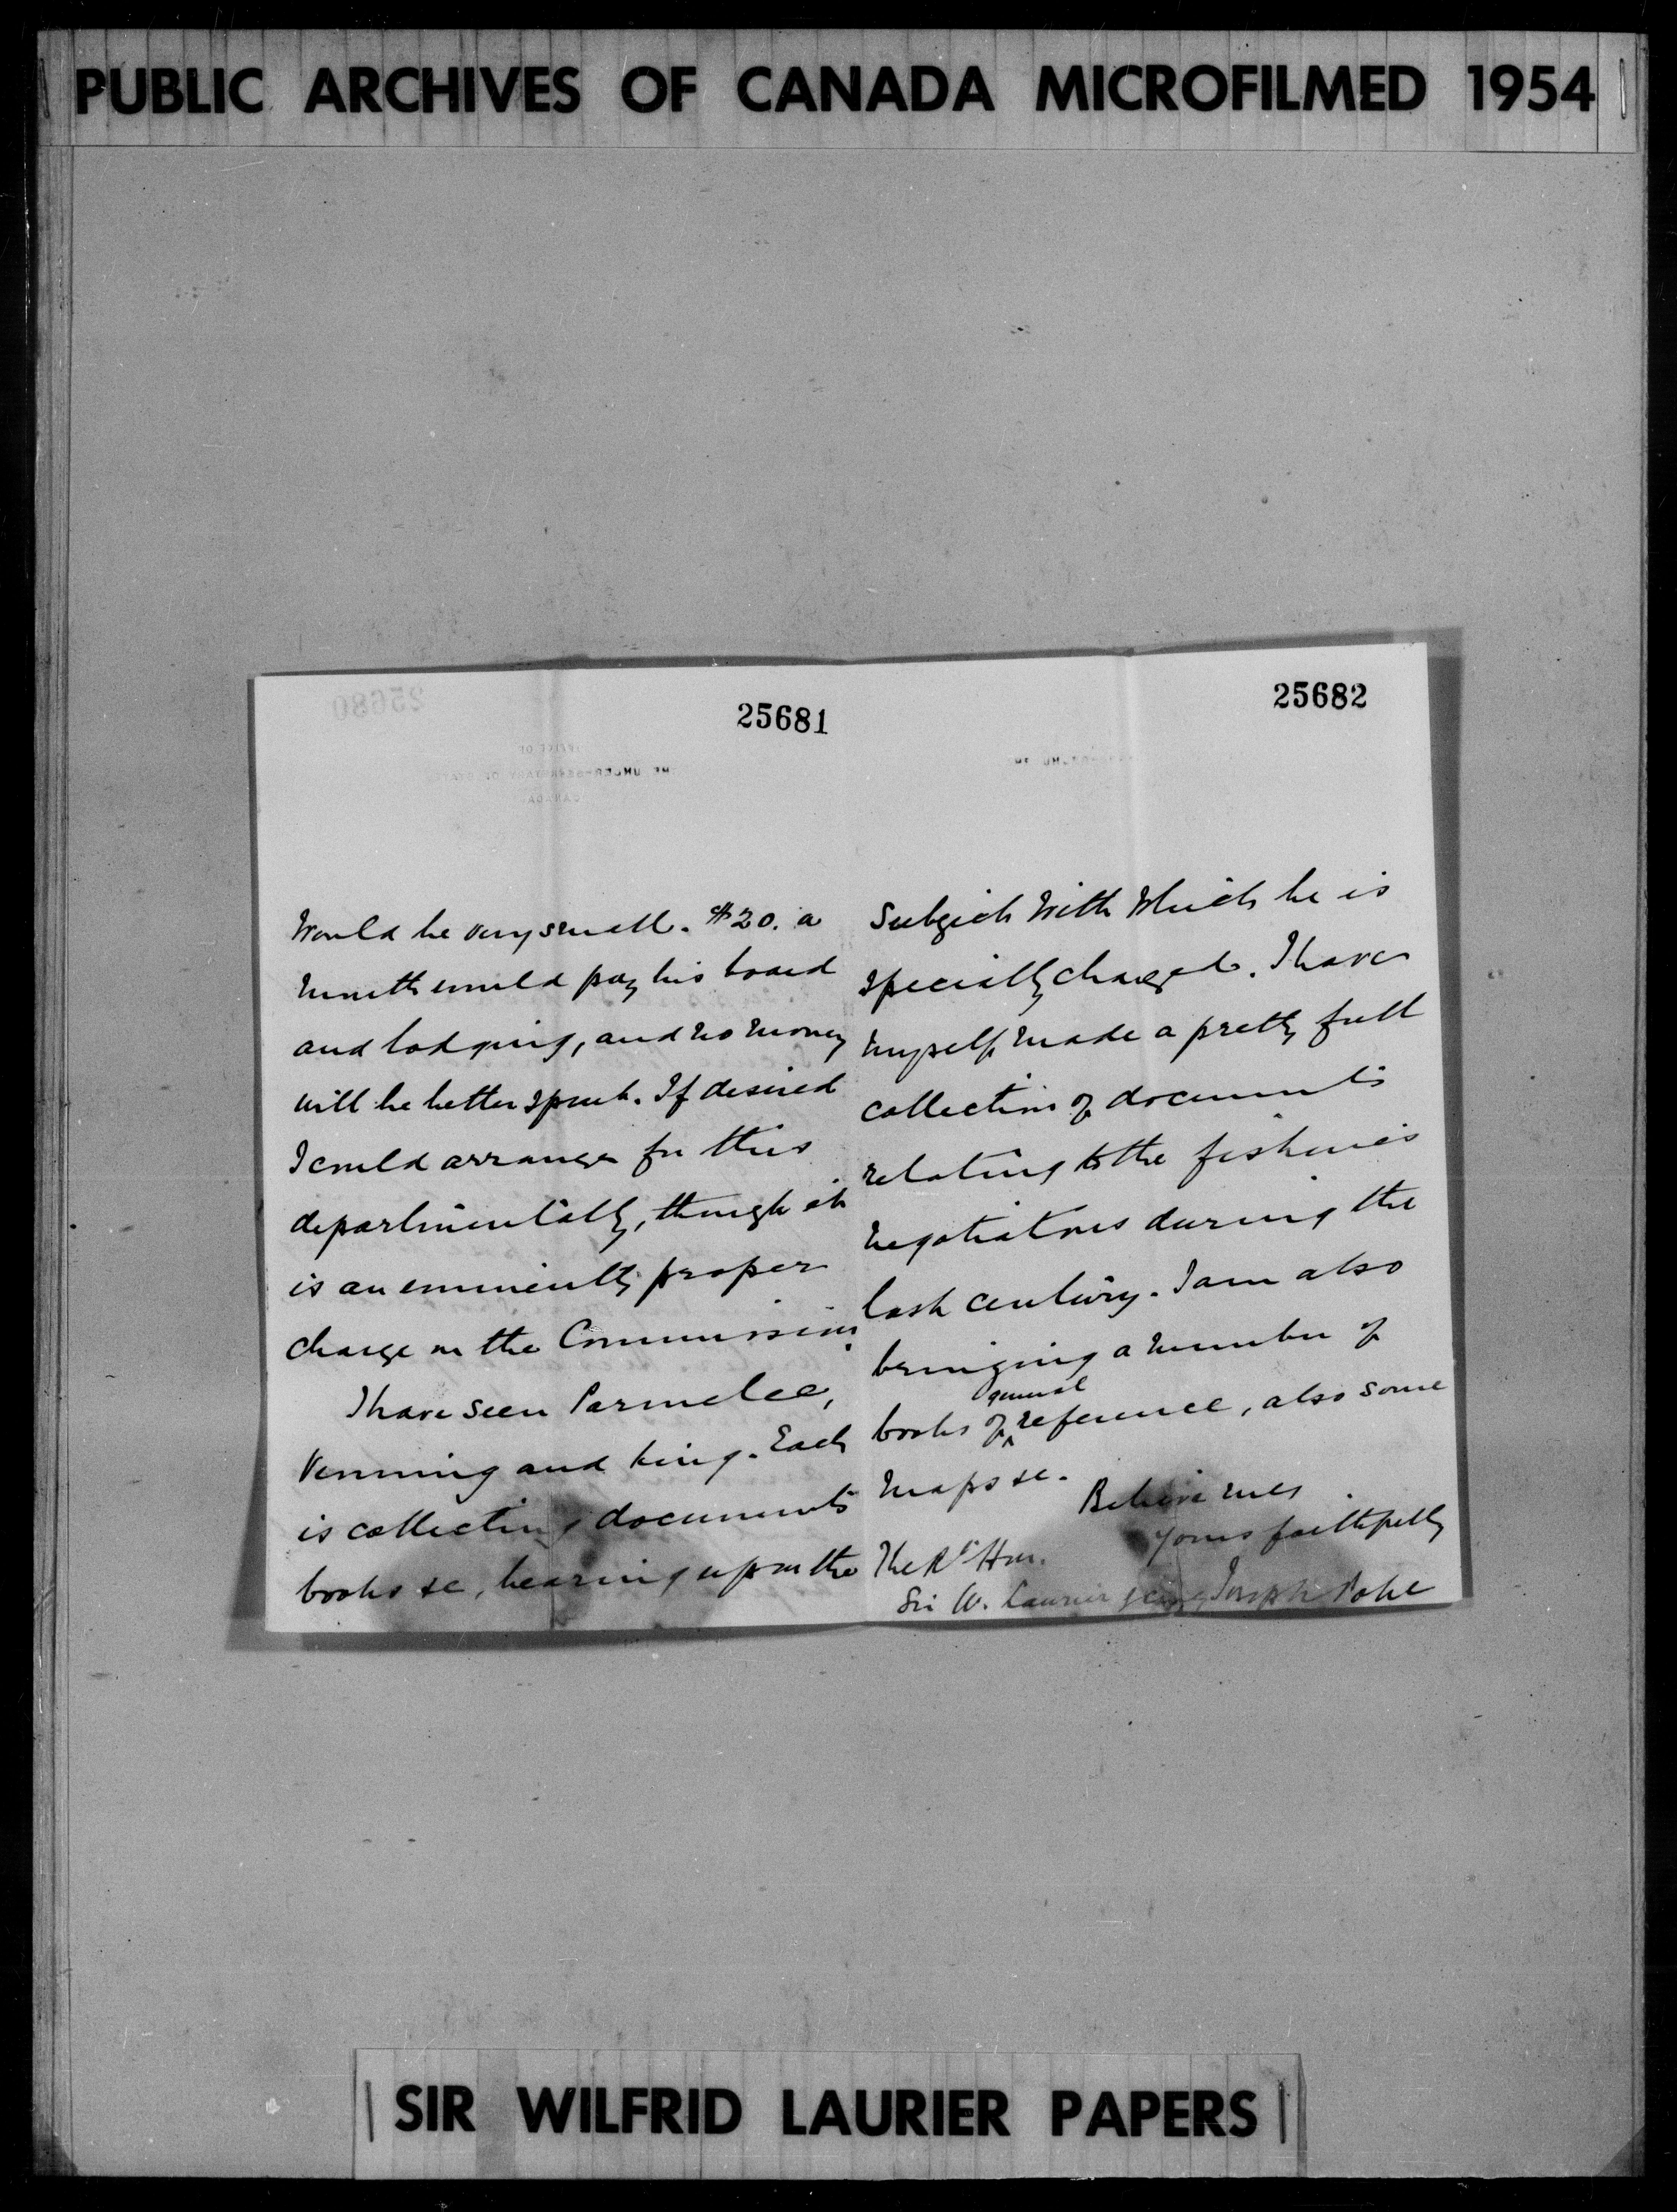 PUBLIC ARCHIVES OF CANADA MICROFILMED 1954
25681
would be very small. $20. a
month would pay his board
and lodging, and no money
will be better spent. If desired
I could arrange for this
departmentally, though it
is an eminently proper
charge on the Commission.
I have seen Parmelee,
Venning and King. Each
is collecting documents
books &c, bearing upon the
25682
subject with which he is
specially charged. I have
myself made a pretty full
collection of documents
relating to the fisheries
negotiations during the
last century. I am also
bringing a number of
general
books of reference, also some
maps &c.
Believe me
yours faithfully
The Rt Hon.
Sir W. Laurier Joseph Pope
SIR WILFRID LAURIER PAPERS